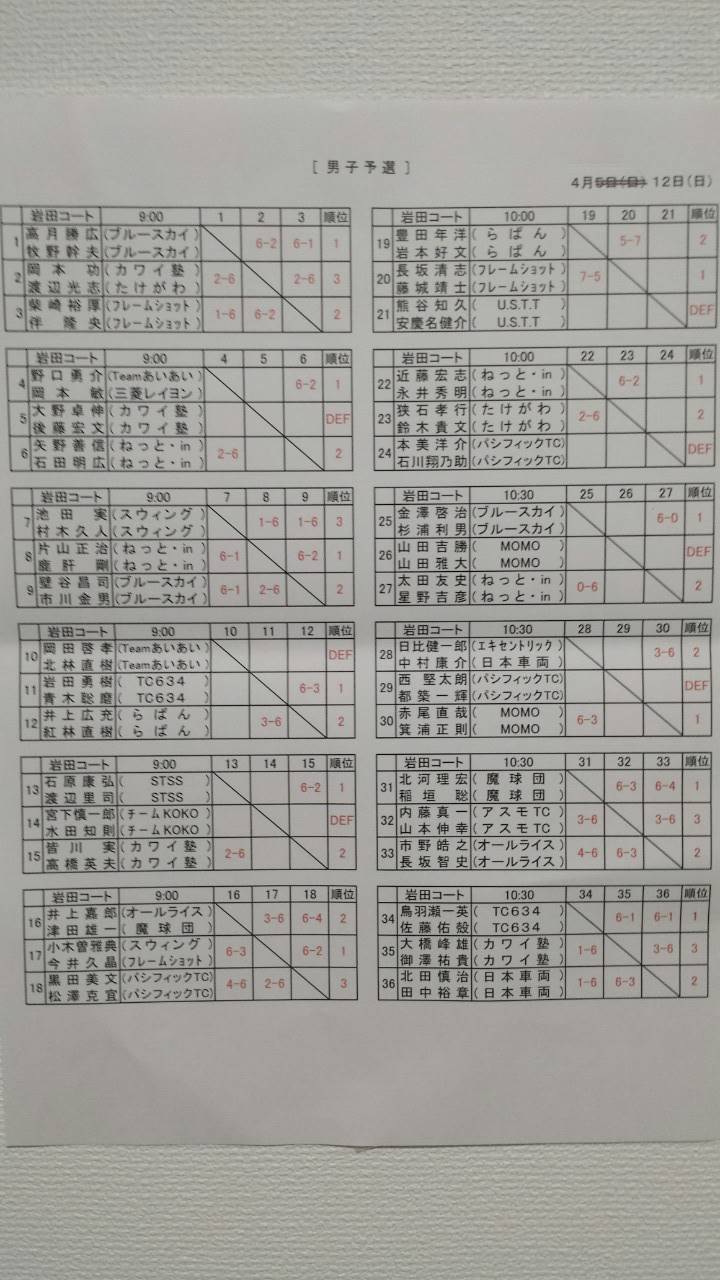 [ 男子予選 ]
4月5日(日) 12日(日)
岩田コート 9:00 1 2 3 順位
1 高月勝広(ブルースカイ) 6-2 6-1 1
牧野幹夫(ブルースカイ)
2 岡本 功(カワイ塾) 2-6 2-6 3
渡辺光志(たけがわ)
3 柴崎裕厚(フレームショット) 1-6 6-2 2
伴 隆央(フレームショット)
岩田コート 9:00 4 5 6 順位
4 野口勇介(Teamあいあい) 6-2 1
岡本 敏(三菱レイヨン)
5 大野卓伸(カワイ塾) DEF
後藤宏文(カワイ塾)
6 矢野善信(ねっと・in) 2-6 2
石田明広(ねっと・in)
岩田コート 9:00 7 8 9 順位
7 池田 実(スウィング) 1-6 1-6 3
村木久人(スウィング)
8 片山正治(ねっと・in) 6-1 6-2 1
鹿肝 剛(ねっと・in)
9 壁谷昌司(ブルースカイ) 6-1 2-6 2
市川金男(ブルースカイ)
岩田コート 9:00 10 11 12 順位
10 岡田啓孝(Teamあいあい) DEF
北林直樹(Teamあいあい)
11 岩田勇樹( TC634 ) 6-3 1
青木聡磨( TC634 )
12 井上広充(らぱん) 3-6 2
紅林直樹(らぱん)
岩田コート 9:00 13 14 15 順位
13 石原康弘( STSS ) 6-2 1
渡辺里司( STSS )
14 宮下慎一郎(チームKOKO) DEF
水田知則(チームKOKO)
15 皆川 実(カワイ塾) 2-6 2
高橋英夫(カワイ塾)
岩田コート 9:00 16 17 18 順位
16 井上嘉郎(オールライス) 3-6 6-4 2
津田雄一(魔球団)
17 小木曽雅典(スウィング) 6-3 6-2 1
今井久晶(フレームショット)
18 黒田美文(パシフィックTC) 4-6 2-6 3
松澤克宜(パシフィックTC)
岩田コート 10:00 19 20 21 順位
19 豊田年洋(らぱん) 5-7 2
岩本好文(らぱん)
20 長坂清志(フレームショット) 7-5 1
藤城靖士(フレームショット)
21 熊谷知久( U.S.T.T ) DEF
安慶名健介( U.S.T.T )
岩田コート 10:00 22 23 24 順位
22 近藤宏志(ねっと・in) 6-2 1
永井秀明(ねっと・in)
23 狭石孝行(たけがわ) 2-6 2
鈴木貴文(たけがわ)
24 本美洋介(パシフィックTC) DEF
石川翔乃助(パシフィックTC)
岩田コート 10:30 25 26 27 順位
25 金澤啓治(ブルースカイ) 6-0 1
杉浦利男(ブルースカイ)
26 山田吉勝( MOMO ) DEF
山田雅大( MOMO )
27 太田友史(ねっと・in) 0-6 2
星野吉彦(ねっと・in)
岩田コート 10:30 28 29 30 順位
28 日比健一郎(エキセントリック) 3-6 2
中村康介(日本車両)
29 西 堅太朗(パシフィックTC) DEF
都築一輝(パシフィックTC)
30 赤尾直哉( MOMO ) 6-3 1
箕浦正則( MOMO )
岩田コート 10:30 31 32 33 順位
31 北河理宏(魔球団) 6-3 6-4 1
稲垣 聡(魔球団)
32 内藤真一(アスモTC) 3-6 3-6 3
山本伸幸(アスモTC)
33 市野皓之(オールライス) 4-6 6-3 2
長坂智史(オールライス)
岩田コート 10:30 34 35 36 順位
34 鳥羽瀬一英( TC634 ) 6-1 6-1 1
佐藤佑殻( TC634 )
35 大橋峰雄(カワイ塾) 1-6 3-6 3
御澤祐貴(カワイ塾)
36 北田慎治(日本車両) 1-6 6-3 2
田中裕章(日本車両)